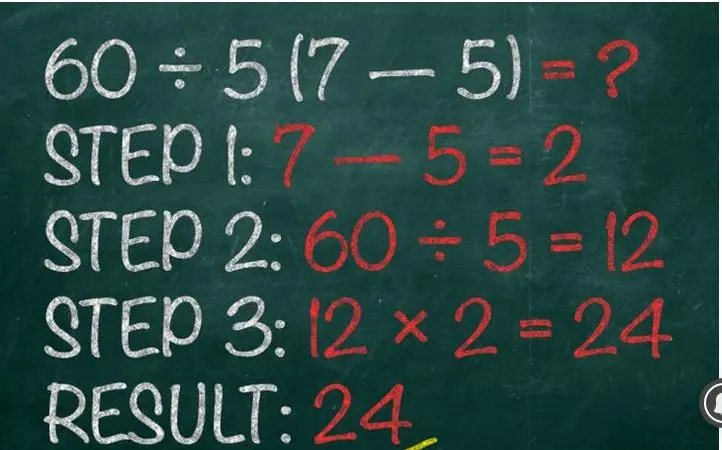 60 ÷ 5 (7 — 5) = ?
STEP 1: 7 — 5 = 2
STEP 2: 60 ÷ 5 = 12
STEP 3: 12 × 2 = 24
RESULT: 24